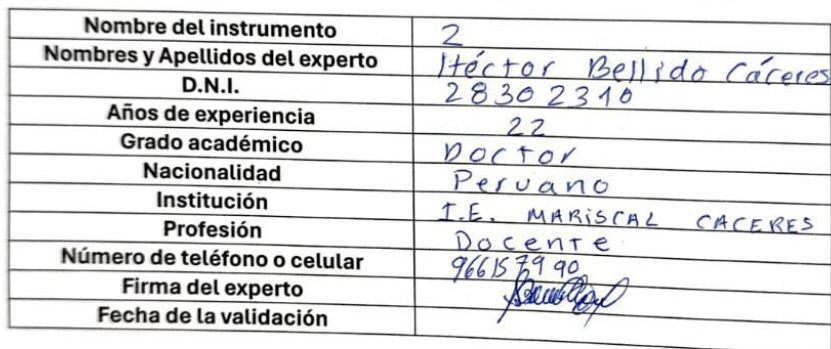 Nombre del instrumento 2
Nombres y Apellidos del experto Héctor Bellido Cáceres
D.N.I. 28302310
Años de experiencia 22
Grado académico Doctor
Nacionalidad Peruano
Institución I.E. MARISCAL CACERES
Profesión Docente
Número de teléfono o celular 966157990
Firma del experto
Fecha de la validación